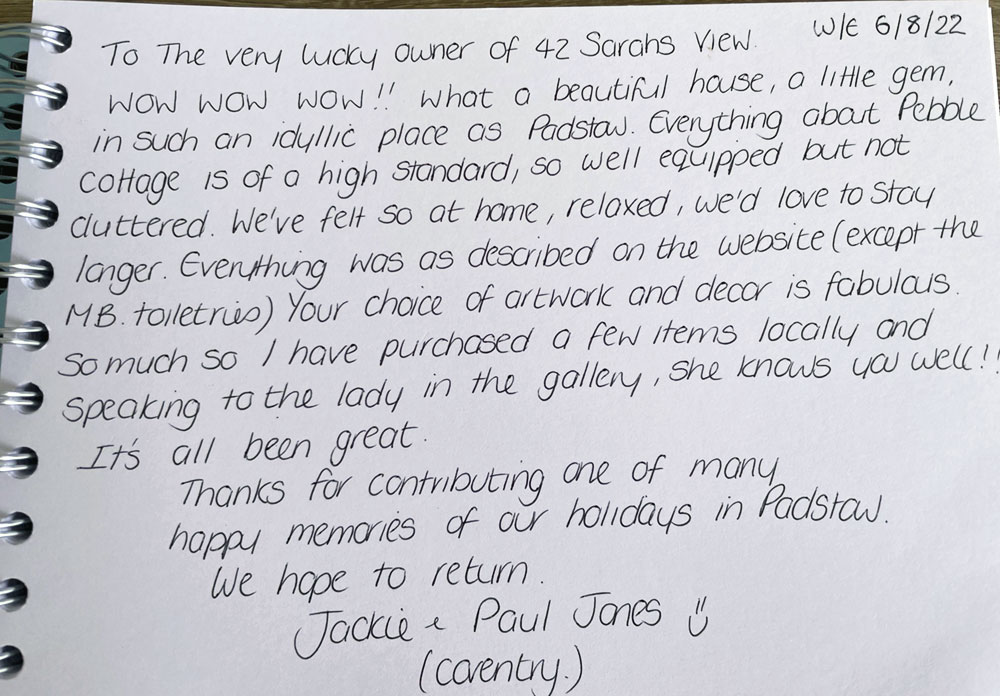 W/E 6/8/22
To The very lucky owner of 42 Sarahs View.
WOW WOW WOW!! What a beautiful house, a little gem,
in such an idyllic place as Padstow. Everything about Pebble
cottage is of a high standard, so well equipped but not
cluttered. We've felt so at home, relaxed, we'd love to stay
longer. Everything was as described on the website (except the
MB. toiletries) Your choice of artwork and decor is fabulous.
So much so I have purchased a few items locally and
speaking to the lady in the gallery, she knows you well!!
It's all been great.
Thanks for contributing one of many
happy memories of our holidays in Padstow.
We hope to return.
Jackie & Paul Jones
(Coventry.)